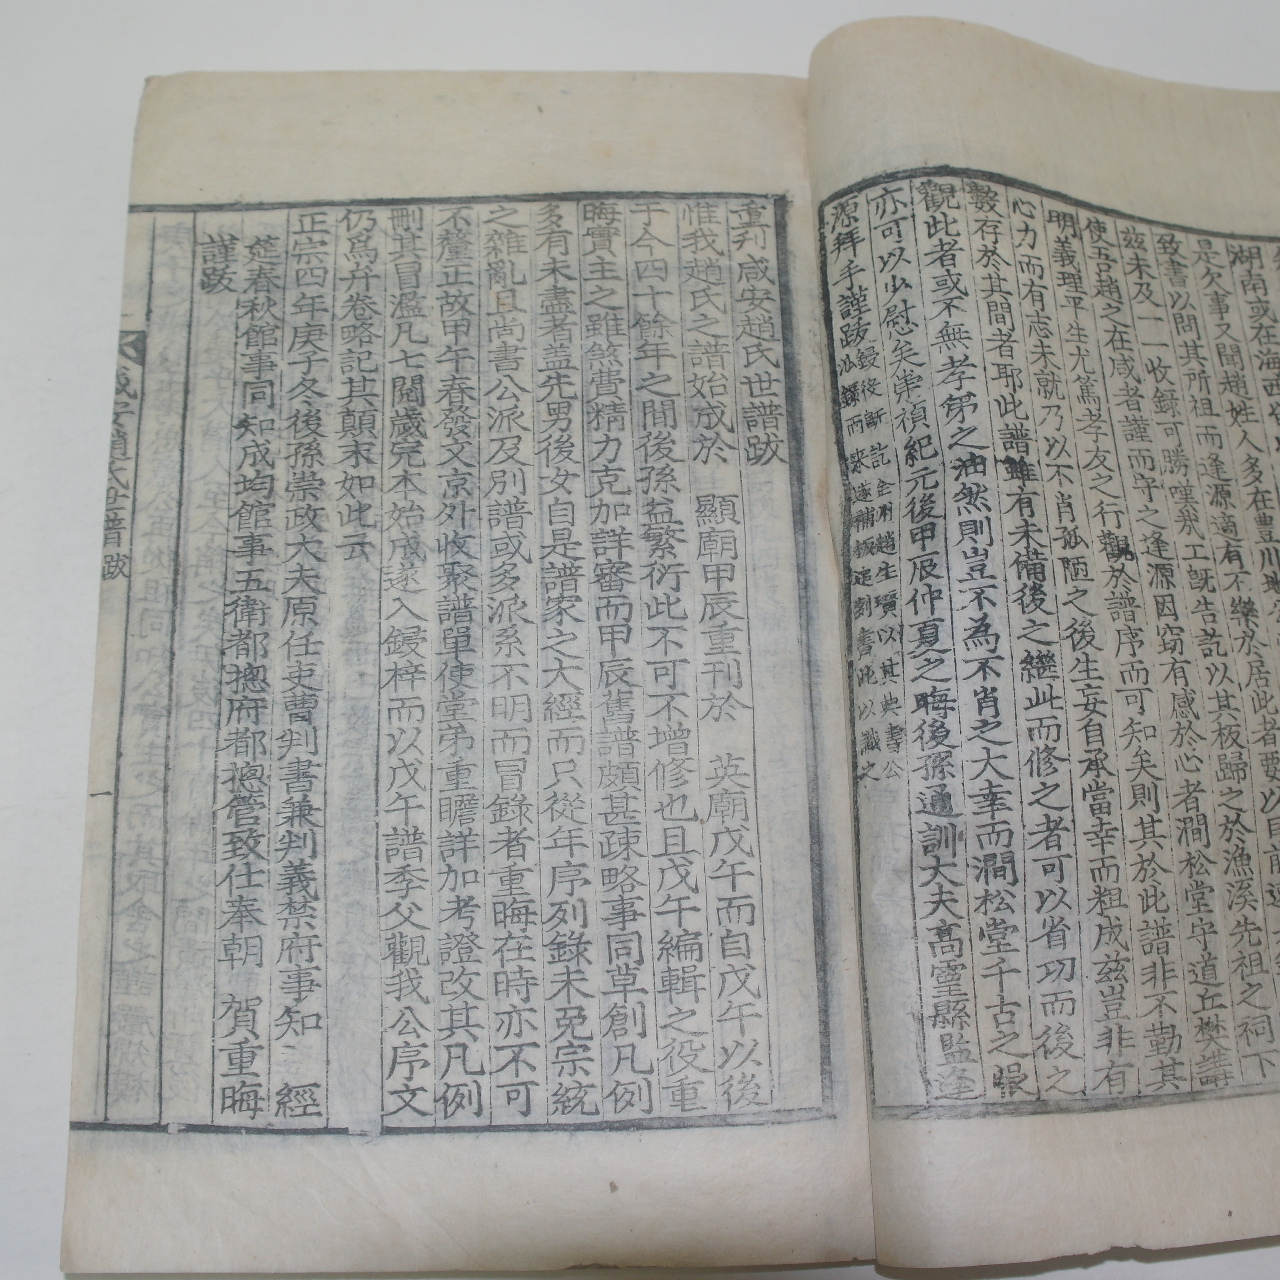 湖南或在海西
是欠事又聞趙姓人多在豊川
致書以問其所祖而逢源適有不樂於居此者要以目前
玆未及一一收錄可勝嘆哉工旣告訖以其板歸之於漁溪先祖之祠下
使吾趙之在咸者謹而守之逢源因窃有感於心者澗松堂守道丘樊講
明義理平生尤篤孝友之行觀於譜序而可知矣則其於此譜非不勤其
心力而有志未就乃以不肖孤陋之後生妄自承當幸而粗成玆豈非有
數存於其間者耶此譜雖有未備後之繼此而修之者可以省功而後之
觀此者或不無孝弟之油然則豈不為不肖之大幸而澗松堂千古之眼
亦可以少慰矣崇禎紀元後甲辰仲夏之晦後孫通訓大夫高靈縣監逢
源拜手謹跋
鋟後斷訖全州趙生瓆以其典書公
派錄而來遂補板追刻書此以識之
重刊咸安趙氏世譜跋
惟我趙氏之譜始成於 顯廟甲辰重刊於 英廟戊午而自戊午以後
于今四十餘年之間後孫益繁衍此不可不增修也且戊午編輯之役重
晦實主之雖煞費精力克加詳審而甲辰舊譜頗甚疎略事同草創凡例
多有未盡者盖先男後女自是譜家之大經而只從年序列錄未免宗統
之雜亂且尚書公派及別譜或多派系不明而冒錄者重晦在時亦不可
不釐正故甲午春發文京外收聚譜單使堂弟重瞻詳加考證改其凡例
刪其冒濫凡七閱歲完本始成遂入鋟梓而以戊午譜季父觀我公序文
仍爲弁卷略記其顛末如此云
正宗四年庚子冬後孫崇政大夫原任吏曹判書兼判義禁府事知 經
筵春秋館事同知成均館事五衛都摠府都摠管致仕奉朝 賀重晦
謹跋
咸安趙氏世譜 跋
一